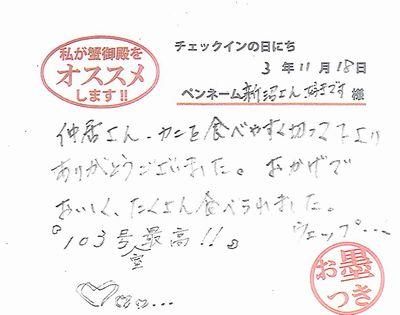 私が蟹御殿を
オススメ
します!!
チェックインの日にち
3年11月18日
ペンネーム 新沼さん好きです 様
仲居さん、カニを食べやすく切って下さり
ありがとうございました。おかげで
おいしく、たくさん食べられました。
『103号室最高!!』 ウェップ…
お墨
つき